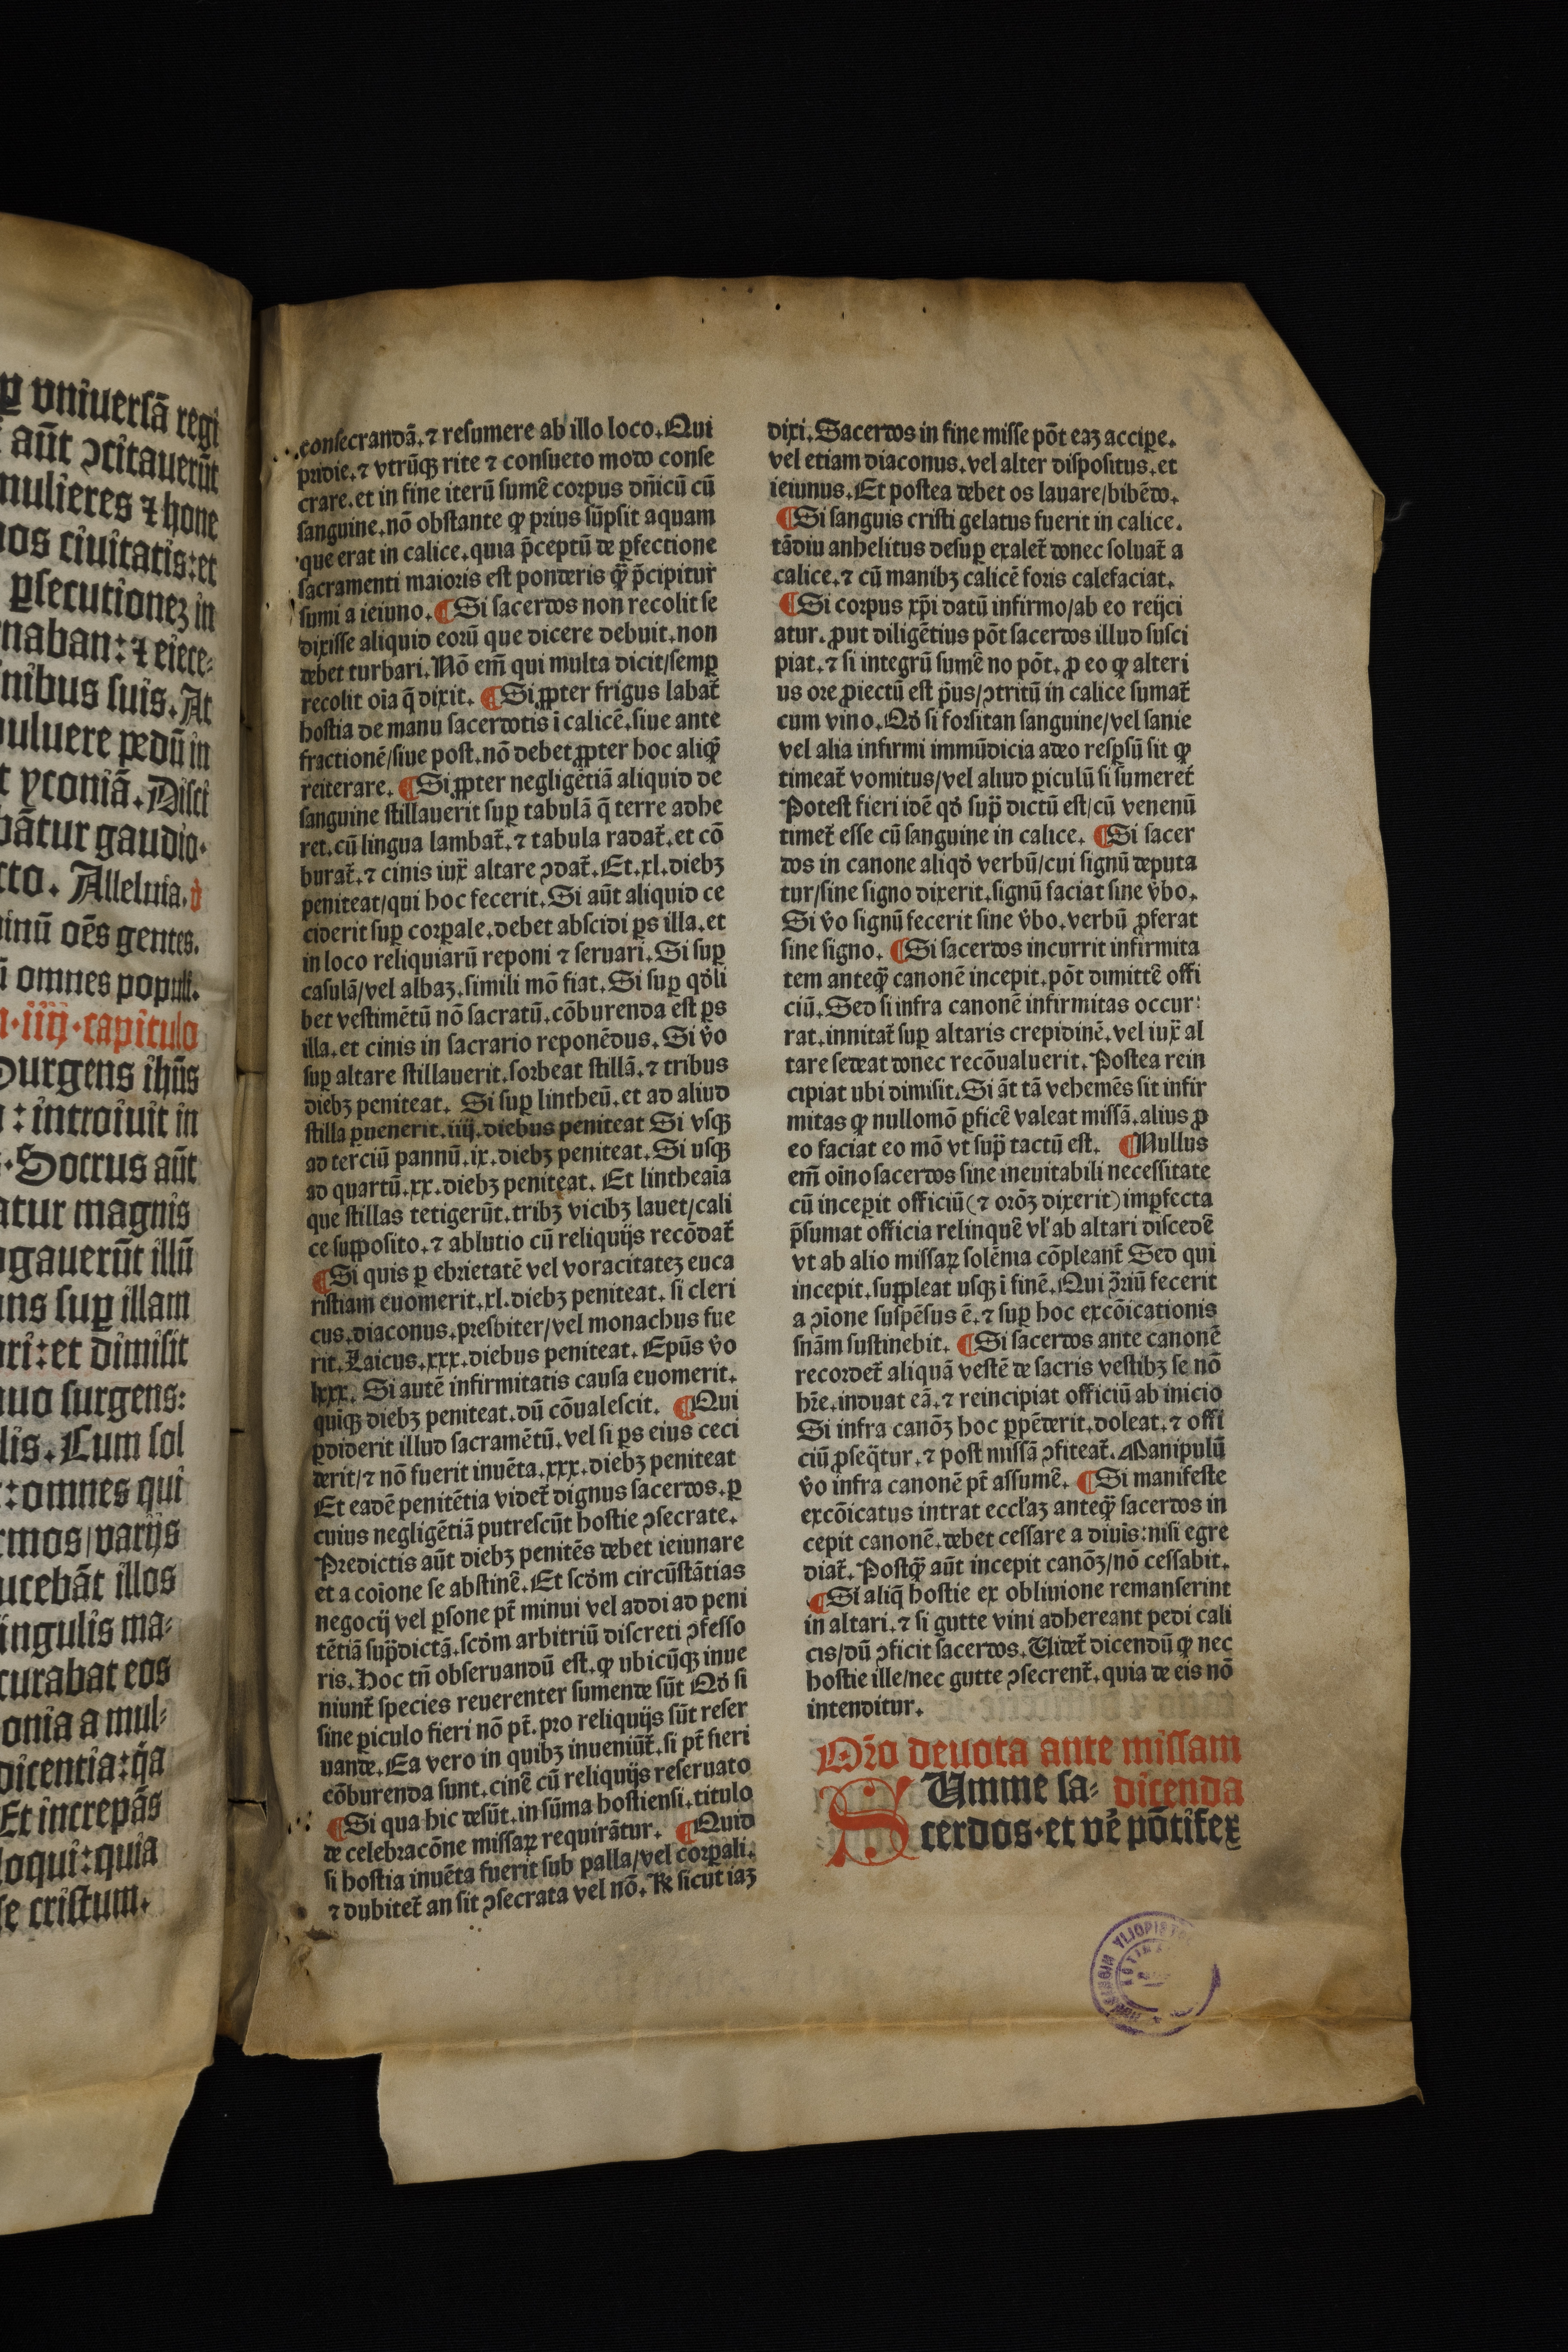 ꝑ vniuersā regi
aūt ↄcitauerūt
mulieres ⁊ hone
os ciuitatis: et
ꝑsecutionez in
naban: ⁊ eiece-
nibus suis. At
puluere pedū in
t yconiā. Disci
bātur gaudio.
cto. Alleluia.
inū oēs gentes.
ū omnes populi.
iiij. capitulo
Surgens ihūs
: introiuit in
Socrus aūt
atur magnis
gauerūt illū
ans suꝑ illam
ri: et dimisit
nuo surgens:
lis. Cum sol
: omnes qui
rmos / varijs
ucebāt illos
ingulis ma-
curabat eos
onia a mul-
dicentia: q̄a
Et increpās
loqui: quia
se cristum.
consecrandā. ⁊ resumere ab illo loco. Qui
pridie. ⁊ vtrūqꝫ rite ⁊ consueto modo conse
crare. et in fine iterū sumē corpus dn̄icū cū
sanguine. nō obstante ꝙ prius sūpsit aquam
que erat in calice. quia p̄ceptū de ꝑfectione
sacramenti maioris est ponderis qꝫ̄ p̄cipitur
sumi a ieiuno. ¶Si sacerdos non recolit se
dixisse aliquid eorū que dicere debuit. non
debet turbari. Nō em̄ qui multa dicit / semꝑ
recolit oīa q̄ dixit. ¶Si ꝓpter frigus labat᷑
hostia de manu sacerdotis ī calicē. siue ante
fractionē / siue post. nō debet ꝓpter hoc aliqꝫ̄
reiterare. ¶Si ꝓpter negligētiā aliquid de
sanguine stillauerit suꝑ tabulā q̄ terre adhe
ret. cū lingua lambat᷑. ⁊ tabula radat᷑. et cō
burat᷑. ⁊ cinis iux̄ altare ↄdat᷑. Et. xl. diebꝫ
peniteat / qui hoc fecerit. Si aūt aliquid ce
ciderit suꝑ corꝑale. debet abscidi ꝑs illa. et
in loco reliquiarū reponi ⁊ seruari. Si suꝑ
casulā / vel albaꝫ. simili mō fiat. Si suꝑ qd̓li
bet vestimētū nō sacratū. cōburenda est ꝑs
illa. et cinis in sacrario reponēdus. Si v̓o
suꝑ altare stillauerit. sorbeat stillā. ⁊ tribus
diebꝫ peniteat. Si suꝑ lintheū. et ad aliud
stilla ꝑuenerit. iiij. diebus peniteat Si vsqꝫ
ad terciū pannū. ix. diebꝫ peniteat. Si usqꝫ
ad quartū. xx. diebꝫ peniteat. Et lintheaīa
que stillas tetigerūt. tribꝫ vicibꝫ lauet / cali
ce suꝑposito. ⁊ ablutio cū reliquijs recōdat᷑
¶Si quis ꝑ ebrietatē vel voracitateꝫ euca
ristiam euomerit. xl. diebꝫ peniteat. si cleri
cus. diaconus. presbiter / vel monachus fue
rit. Laicus. xxx. diebus peniteat. Epūs v̓o
lxxx. Si autē infirmitatis causa euomerit.
quīqꝫ diebꝫ peniteat. dū cōualescit. ¶Qui
ꝑdiderit illud sacramētū. vel si ꝑs eius ceci
derit / ⁊ nō fuerit inuēta. xxx. diebꝫ peniteat
Et eadē penitētia videt᷑ dignus sacerdos. ꝑ
cuius negligētiā putrescūt hostie ↄsecrate.
Predictis aūt diebꝫ penitēs debet ieiunare
et a coīone se abstinē. Et scd̓m circūstātias
negocij vel ꝑsone pt̄ minui vel addi ad peni
tētiā sup̄dictā. scd̓m arbitriū discreti ↄfesso
ris. Hoc tn̄ obseruandū est. ꝙ ubicūqꝫ inue
niunt᷑ species reuerenter sumende sūt Qd̓ si
sine ꝑiculo fieri nō pt̄. pro reliquijs sūt reser
uande. Ea vero in quibꝫ inueniūt᷑. si pt̄ fieri
cōburenda sunt. cinē cū reliquijs reseruato
¶Si qua hic desūt. in sūma hostiensi. titulo
de celebracōne missaꝝ requirātur. ¶Quid
si hostia inuēta fuerit sub palla / vel corꝑali.
⁊ dubitet᷑ an sit ↄsecrata vel nō. ℞ sicut iaꝫ
dixi. Sacerdos in fine misse pōt eaꝫ acciꝑe.
vel etiam diaconus. vel alter dispositus. et
ieiunus. Et postea debet os lauare / bibēdo.
¶Si sanguis cristi gelatus fuerit in calice.
tādiu anhelitus desuꝑ exalet᷑ donec soluat᷑ a
calice. ⁊ cū manibꝫ calicē foris calefaciat.
¶Si corpus xp̄i datū infirmo / ab eo reijci
atur. ꝓut diligētius pōt sacerdos illud susci
piat. ⁊ si integrū sumē no pōt. ꝓ eo ꝙ alteri
us ore ꝓiectū est p̄us / ↄtritū in calice sumat᷑
cum vino. Qd̓ si forsitan sanguine / vel sanie
vel alia infirmi immūdicia adeo resꝑsū sit ꝙ
timeat᷑ vomitus / vel aliud ꝑiculū si sumeret᷑
Potest fieri idē qd̓ sup̄ dictū est / cū venenū
timet᷑ esse cū sanguine in calice. ¶Si sacer
dos in canone aliqd̓ verbū / cui signū deputa
tur / sine signo dixerit. signū faciat sine v̓bo.
Si v̓o signū fecerit sine v̓bo. verbū ꝓferat
sine signo. ¶Si sacerdos incurrit infirmita
tem anteqꝫ̄ canonē incepit. pōt dimittē offi
ciū. Sed si infra canonē infirmitas occur:
rat. innitat᷑ suꝑ altaris crepidinē. vel iux̄ al
tare sedeat donec recōualuerit. Postea rein
cipiat ubi dimisit. Si āt tā vehemēs sit infir
mitas ꝙ nullomō ꝑficē valeat missā. alius ꝓ
eo faciat eo mō vt sup̄ tactū est. ¶Nullus
em̄ oīno sacerdos sine ineuitabili necessitate
cū incepit officiū (⁊ orōꝫ dixerit) imꝑfecta
p̄sumat officia relinquē vl̓ ab altari discedē
vt ab alio missaꝝ solēma cōpleant᷑ Sed qui
incepit. suꝑpleat usqꝫ ī finē. Qui ↄ̄riū fecerit
a ↄīone suspēsus ē. ⁊ suꝑ hoc excōicationis
snīam sustinebit. ¶Si sacerdos ante canonē
recordet᷑ aliquā vestē de sacris vestibꝫ se nō
hr̄e. induat eā. ⁊ reincipiat officiū ab inicio
Si infra canōꝫ hoc ꝑpēderit. doleat. ⁊ offi
ciū ꝓseq̄tur. ⁊ post missā ↄfiteat᷑. Manipulū
v̓o infra canonē pt̄ assumē. ¶Si manifeste
excōicatus intrat eccl̓aꝫ anteqꝫ̄ sacerdos in
cepit canonē. debet cessare a diuīs: nisi egre
diat᷑. Postqꝫ̄ aūt incepit canōꝫ / nō cessabit.
¶Si aliq̄ hostie ex obliuione remanserint
in altari. ⁊ si gutte vini adhereant pedi cali
cis / dū ↄficit sacerdos. Videt᷑ dicendū ꝙ nec
hostie ille / nec gutte ↄsecrent᷑. quia de eis nō
intenditur.
Or̄o deuota ante missam
SUmme sa- dicenda
cerdos. et ve᷑ pōtifex
HELSINGIN YLIOPIST